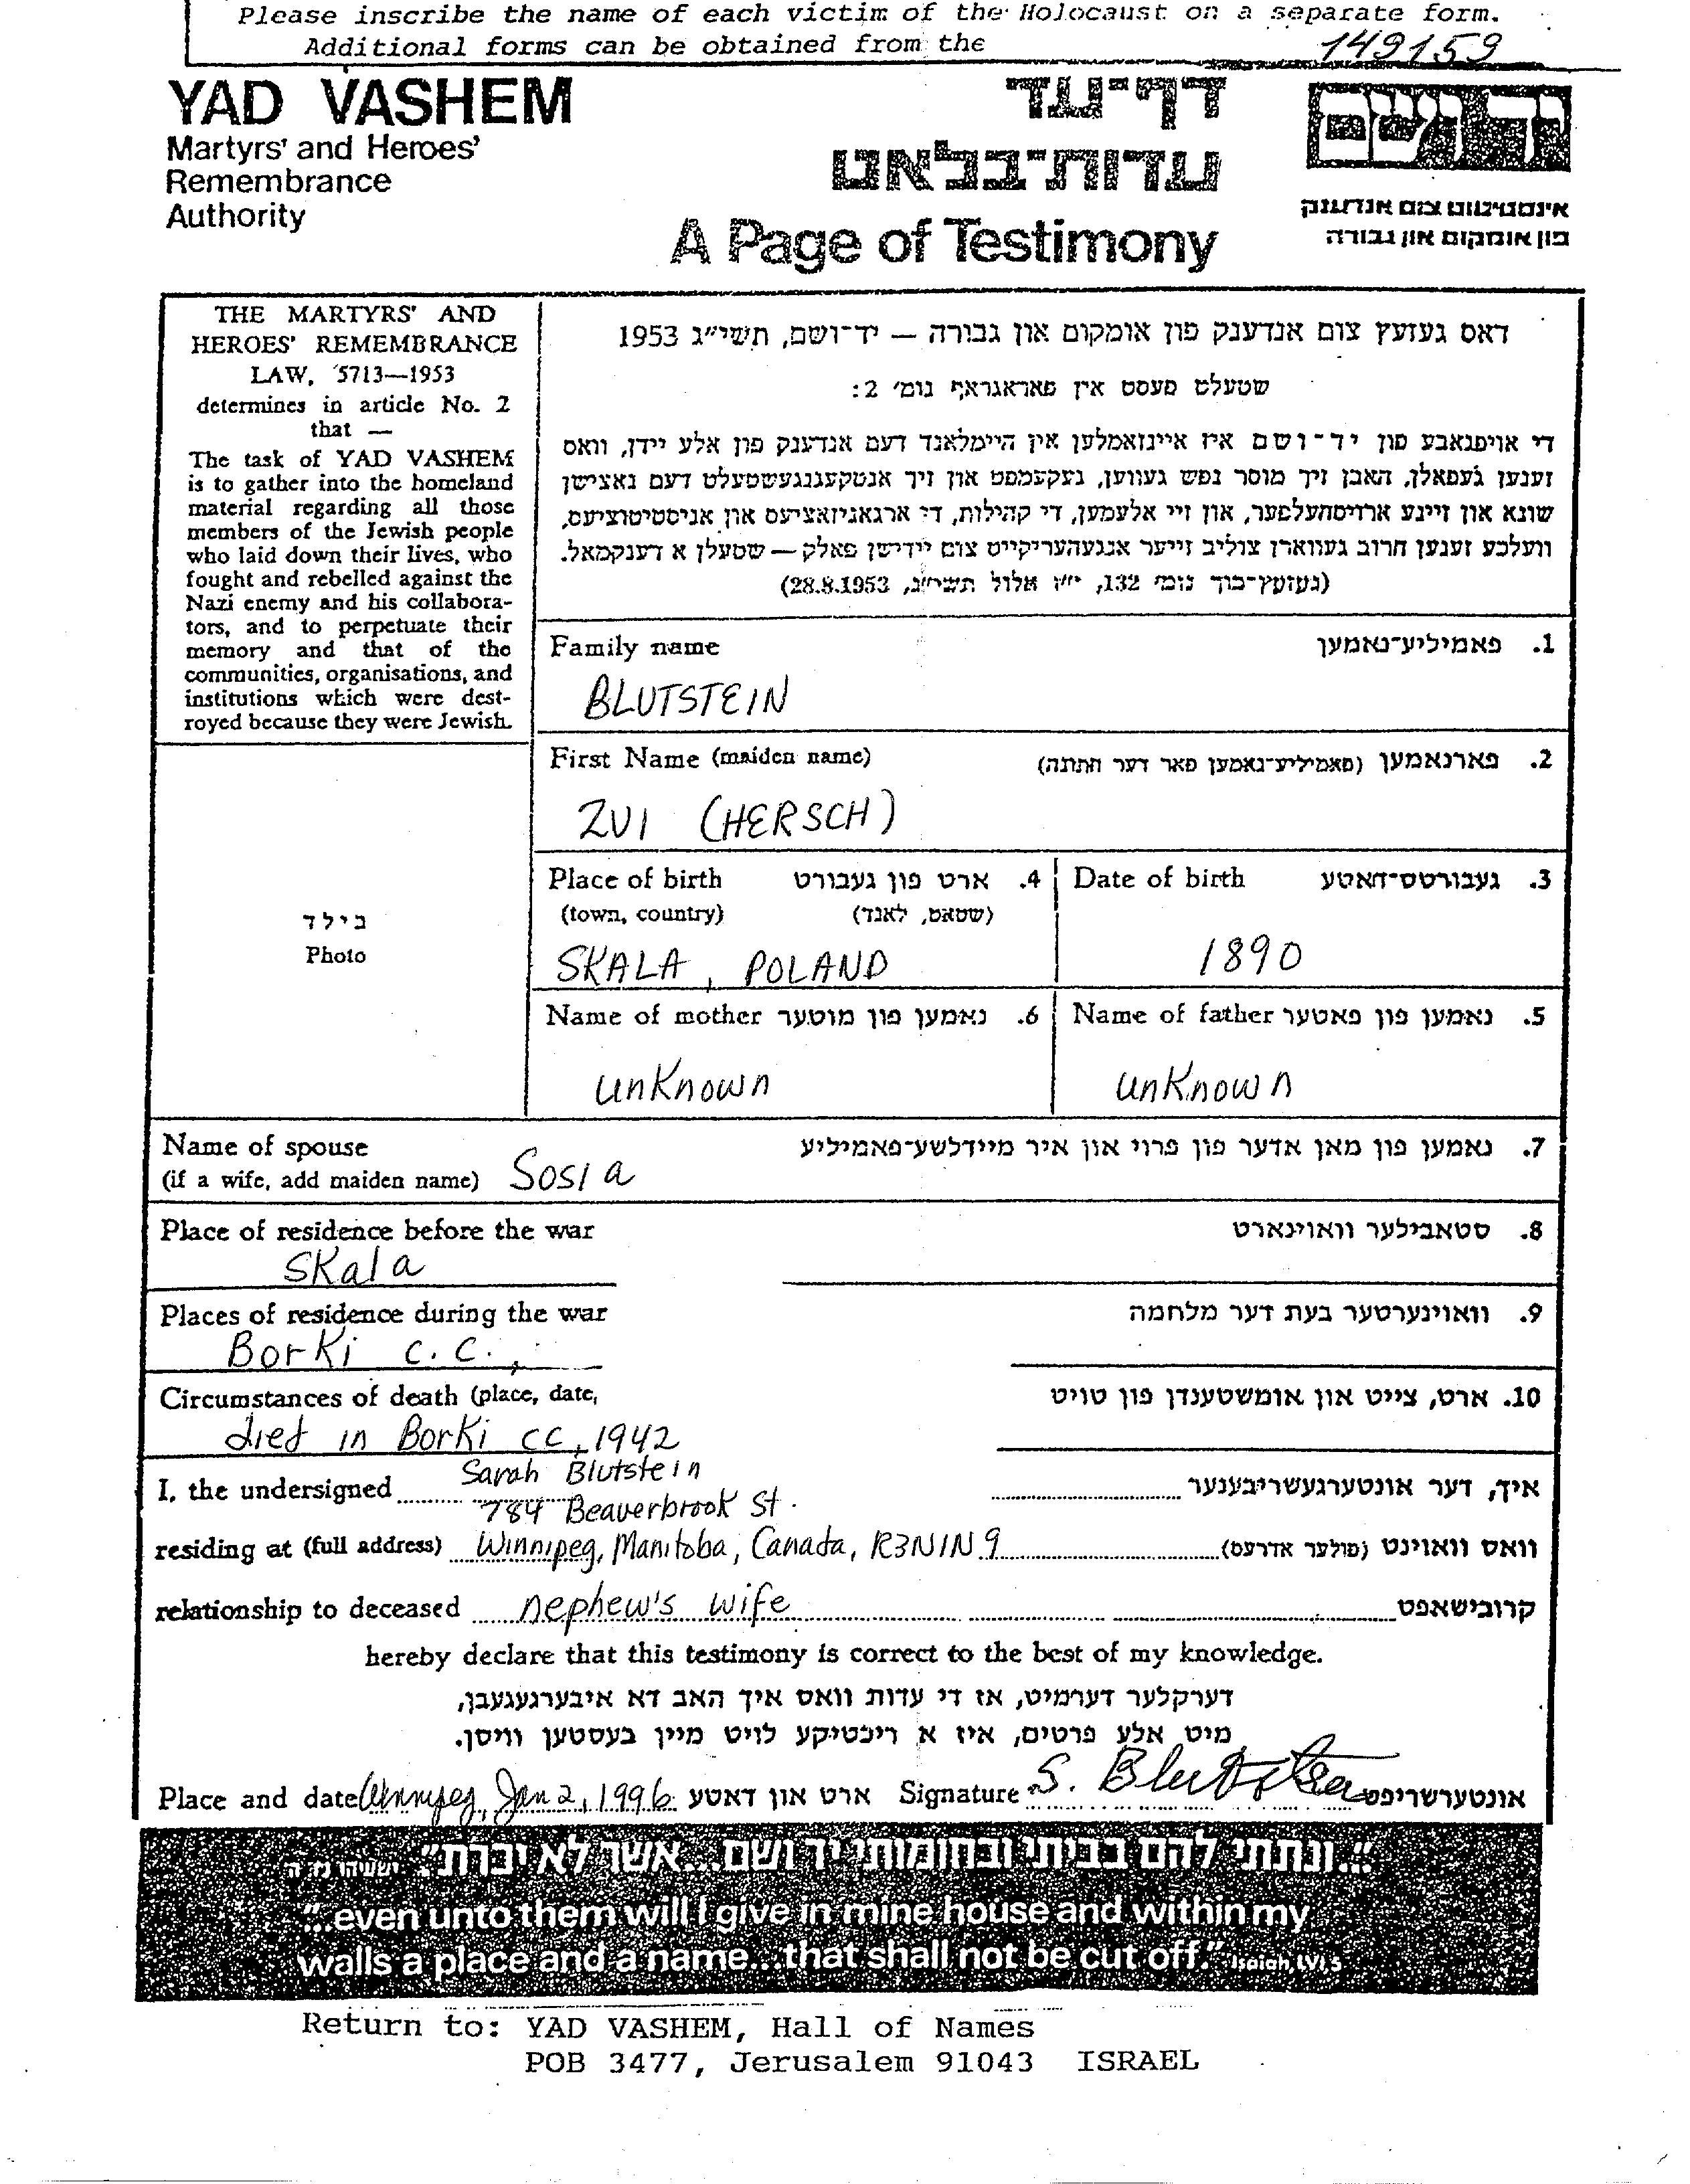 Please inscribe the name of each victim of the Holocaust on a separate form.
Additional forms can be obtained from the
149159
YAD VASHEM
Martyrs' and Heroes'
Remembrance
Authority
דף־עד
עדות־בלאט
A Page of Testimony
יד ושם
אינסטיטוט צום אנדענק
פון אומקום און גבורה
THE MARTYRS' AND
HEROES' REMEMBRANCE
LAW, 5713—1953
determines in article No. 2
that —
The task of YAD VASHEM
is to gather into the homeland
material regarding all those
members of the Jewish people
who laid down their lives, who
fought and rebelled against the
Nazi enemy and his collabora-
tors, and to perpetuate their
memory and that of the
communities, organisations, and
institutions which were dest-
royed because they were Jewish.
דאס געזעץ צום אנדענק פון אומקום און גבורה — יד־ושם, תשי״ג 1953
שטעלט פעסט אין פאראגראף נומ׳ 2:
די אויפגאבע פון יד־ושם איז איינזאמלען אין היימלאנד דעם אנדענק פון אלע יידן, וואס
זענען געפאלן, האבן זיך מוסר נפש געווען, געקעמפט און זיך אנטקעגנגעשטעלט דעם נאצישן
שונא און זיינע ארויסהעלפער, און זיי אלעמען, די קהילות, די ארגאניזאציעס און אניסטיטוציעס,
וועלכע זענען חרוב געווארן צוליב זייער אנגעהעריקייט צום יידישן פאלק — שטעלן א דענקמאל.
(געזעץ־בוך נומ׳ 132, י״ז אלול תשי״ג, 28.8.1953)
Family name
1. פאמיליע־נאמען
BLUTSTEIN
First Name (maiden name)
2. פארנאמען (פאמיליע־נאמען פאר דער חתונה)
ZVI (HERSCH)
Place of birth
4. ארט פון געבורט
(town, country)
(שטאט, לאנד)
SKALA, POLAND
Date of birth
3. געבורטס־דאטע
1890
בילד
Photo
Name of mother
6. נאמען פון מוטער
unknown
Name of father
5. נאמען פון פאטער
unknown
Name of spouse
7. נאמען פון מאן אדער פון פרוי און איר מיידלשע־פאמיליע
(if a wife, add maiden name) Sosia
Place of residence before the war
8. סטאבילער וואוינארט
Skala
Places of residence during the war
9. וואוינערטער בעת דער מלחמה
Borki c.c.,
Circumstances of death (place, date,
10. ארט, צייט און אומשטענדן פון טויט
died in Borki cc, 1942
Sarah Blutstein
I, the undersigned
איך, דער אונטערגעשריבענער
784 Beaverbrook St.
residing at (full address) Winnipeg, Manitoba, Canada, R3N1N9
וואס וואוינט (פולער אדרעס)
relationship to deceased nephew's wife
קרובישאפט
hereby declare that this testimony is correct to the best of my knowledge.
דערקלער דערמיט, אז די עדות וואס איך האב דא איבערגעגעבן,
מיט אלע פרטים, איז א ריכטיקע לויט מיין בעסטען וויסן.
Place and date Winnipeg, Jan 2, 1996 ארט און דאטע Signature S. Blutstein אונטערשריפט
"...ונתתי להם בביתי ובחומותי יד ושם...אשר לא יכרת" ישעיהו נ״ו ה
"...even unto them will I give in mine house and within my
walls a place and a name...that shall not be cut off." Isaiah, LVI, 5
Return to: YAD VASHEM, Hall of Names
POB 3477, Jerusalem 91043 ISRAEL